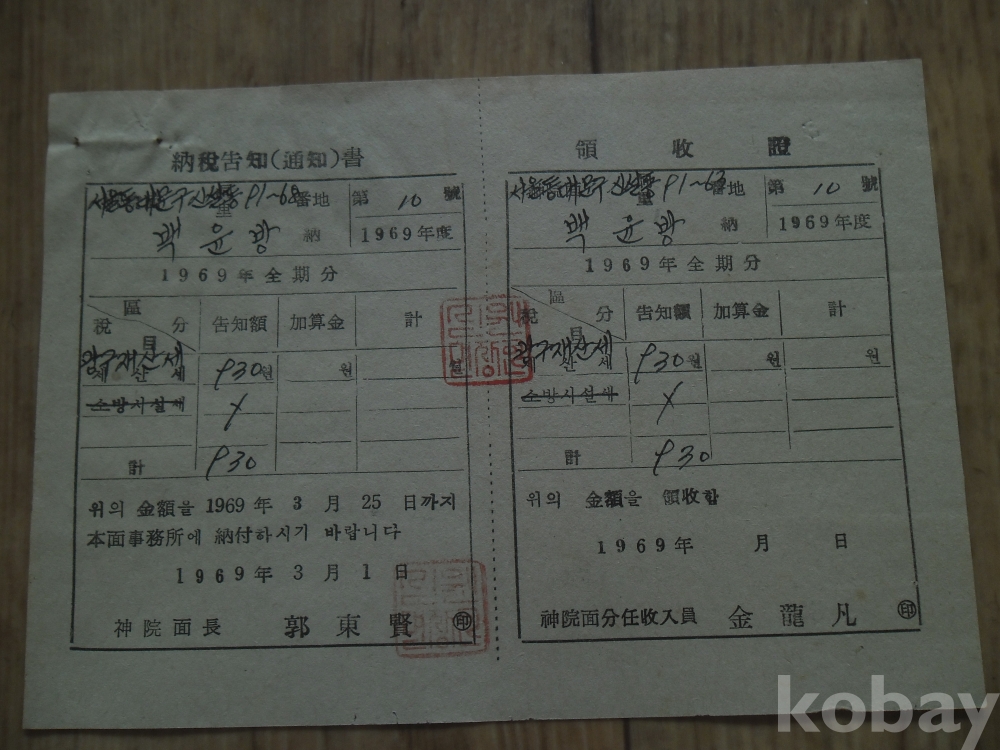 納稅告知(通知)書
서울동대문구 신설동 91~68 番地 第 10 號
백 윤 방 納 1969年度
1969年全期分
區 分
稅 目
告知額 加算金 計
재산세 930원 원 원
소방시설세 X
計 930
위의 金額을 1969年 3月 25日까지
本面事務所에 納付하시기 바랍니다
1969年 3月 1日
神院面長 郭東賢 ㊞
領收證
서울동대문구 신설동 91~63 番地 第 10 號
백 윤 방 納 1969年度
1969年全期分
區 分
稅 目
告知額 加算金 計
재산세 930원 원 원
소방시설세 X
計 930
위의 金額을 領收함
1969年 月 日
神院面分任收入員 金龍凡 ㊞
kobay